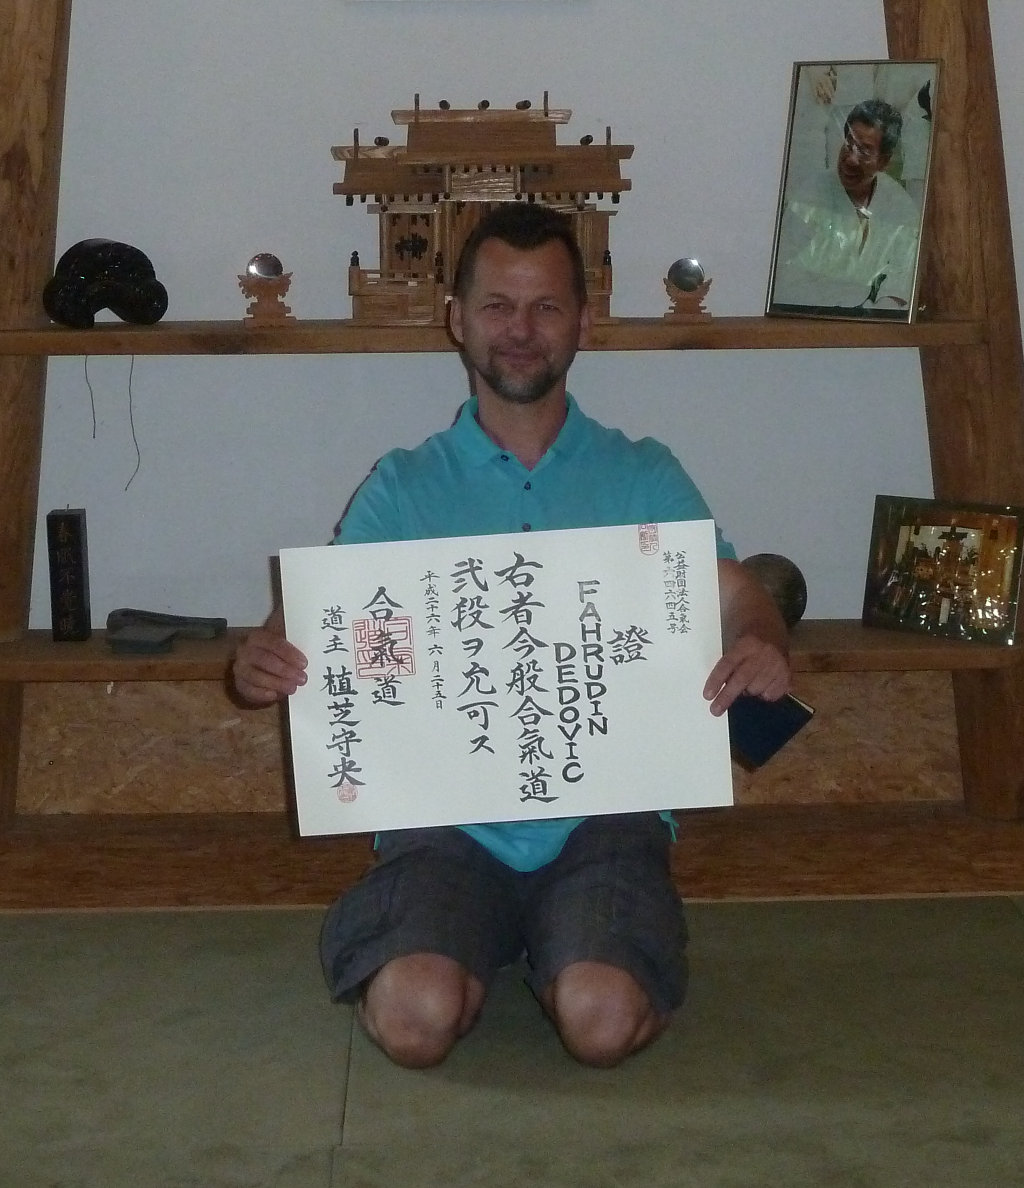 公益財団法人合氣会
第六四六四五号
證
FAHRUDIN
DEDOVIC
右者今般合氣道
弐段ヲ允可ス
平成二十六年 六月二十五日
合氣道
道主 植芝守央
神